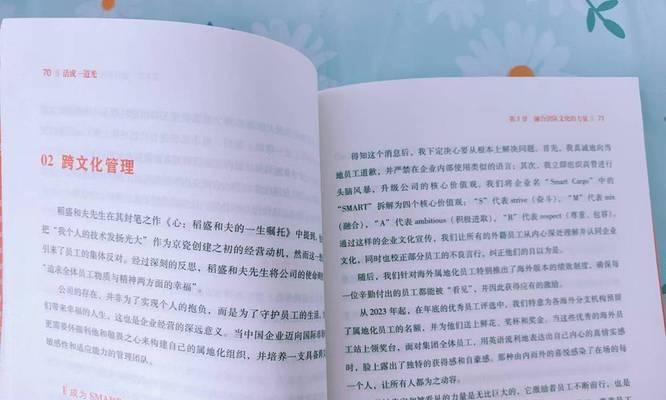 70 活成一道光
02 跨文化管理
稻盛和夫先生在其封笔之作《心：稻盛和夫的一生嘱托》中提到，他
把“我个人的技术发扬光大”作为京瓷创建之初的经营动机，然而这一想
引来了员工的集体反对。经过深刻的反思，稻盛和夫先生将公司的使命
“追求全体员工物质与精神两方面的幸福”。
公司的存在，并非为了实现个人的抱负，而是为了守护员工的生活，
们带来幸福的人生，这也是企业经营的深远意义。当中国企业迈向国际市
更需要怀揣利他和敬畏之心来构建自己的属地化组织，并培养一支具备跨
敏感性和适应能力的管理团队。
成为 SMAR
第3章 融合团队文化的力量 71
得知这个消息后，我下定决心要从根本上解决问题。首先，我真诚地向当
地员工道歉，并严禁在企业内部使用类似的语言；其次，我立即组织高管进行
头脑风暴，升级公司的核心价值观。我们将企业名“Smart Cargo”中的
“SMART”拆解为四个核心价值观：“S”代表 strive（奋斗），“M”代表 mix
（融合），“A”代表 ambitious（积极进取），“R”代表 respect（尊重、包容）。
通过这样的企业文化宣传，我们让所有的外籍员工从内心深处理解并认同企业
文化，同时也校正部分员工的不良言行，纠正他们的自以为是。
随后，我们针对海外属地化员工特别推出了海外版本的绩效制度，确保每
一位辛勤付出的员工都能被“看见”，并因此获得应有的激励。
从 2023 年起，在年底的优秀员工评选中，我们特意为各海外分支机构预留
了属地化员工的名额，并为他们送上鲜花、奖杯和奖金。当这些优秀的海外员
工站上领奖台，面对集团全体员工，用英语流利地表达出自己内心的真情实感
时，脸上露出了独特的获得感和自豪感。那种由内而外的喜悦感染了在场的每
一个人，让所有人都为之动容。
被看见的力量是无比巨大的，它激励着员工不断前行，也是